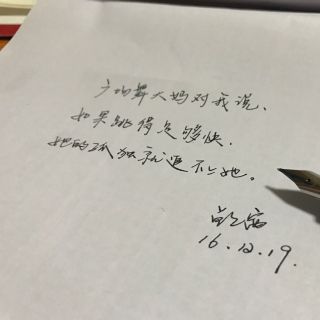 广场舞大妈对我说，
如果跳得足够快，
她的孤独就追不上她。
16.12.19.